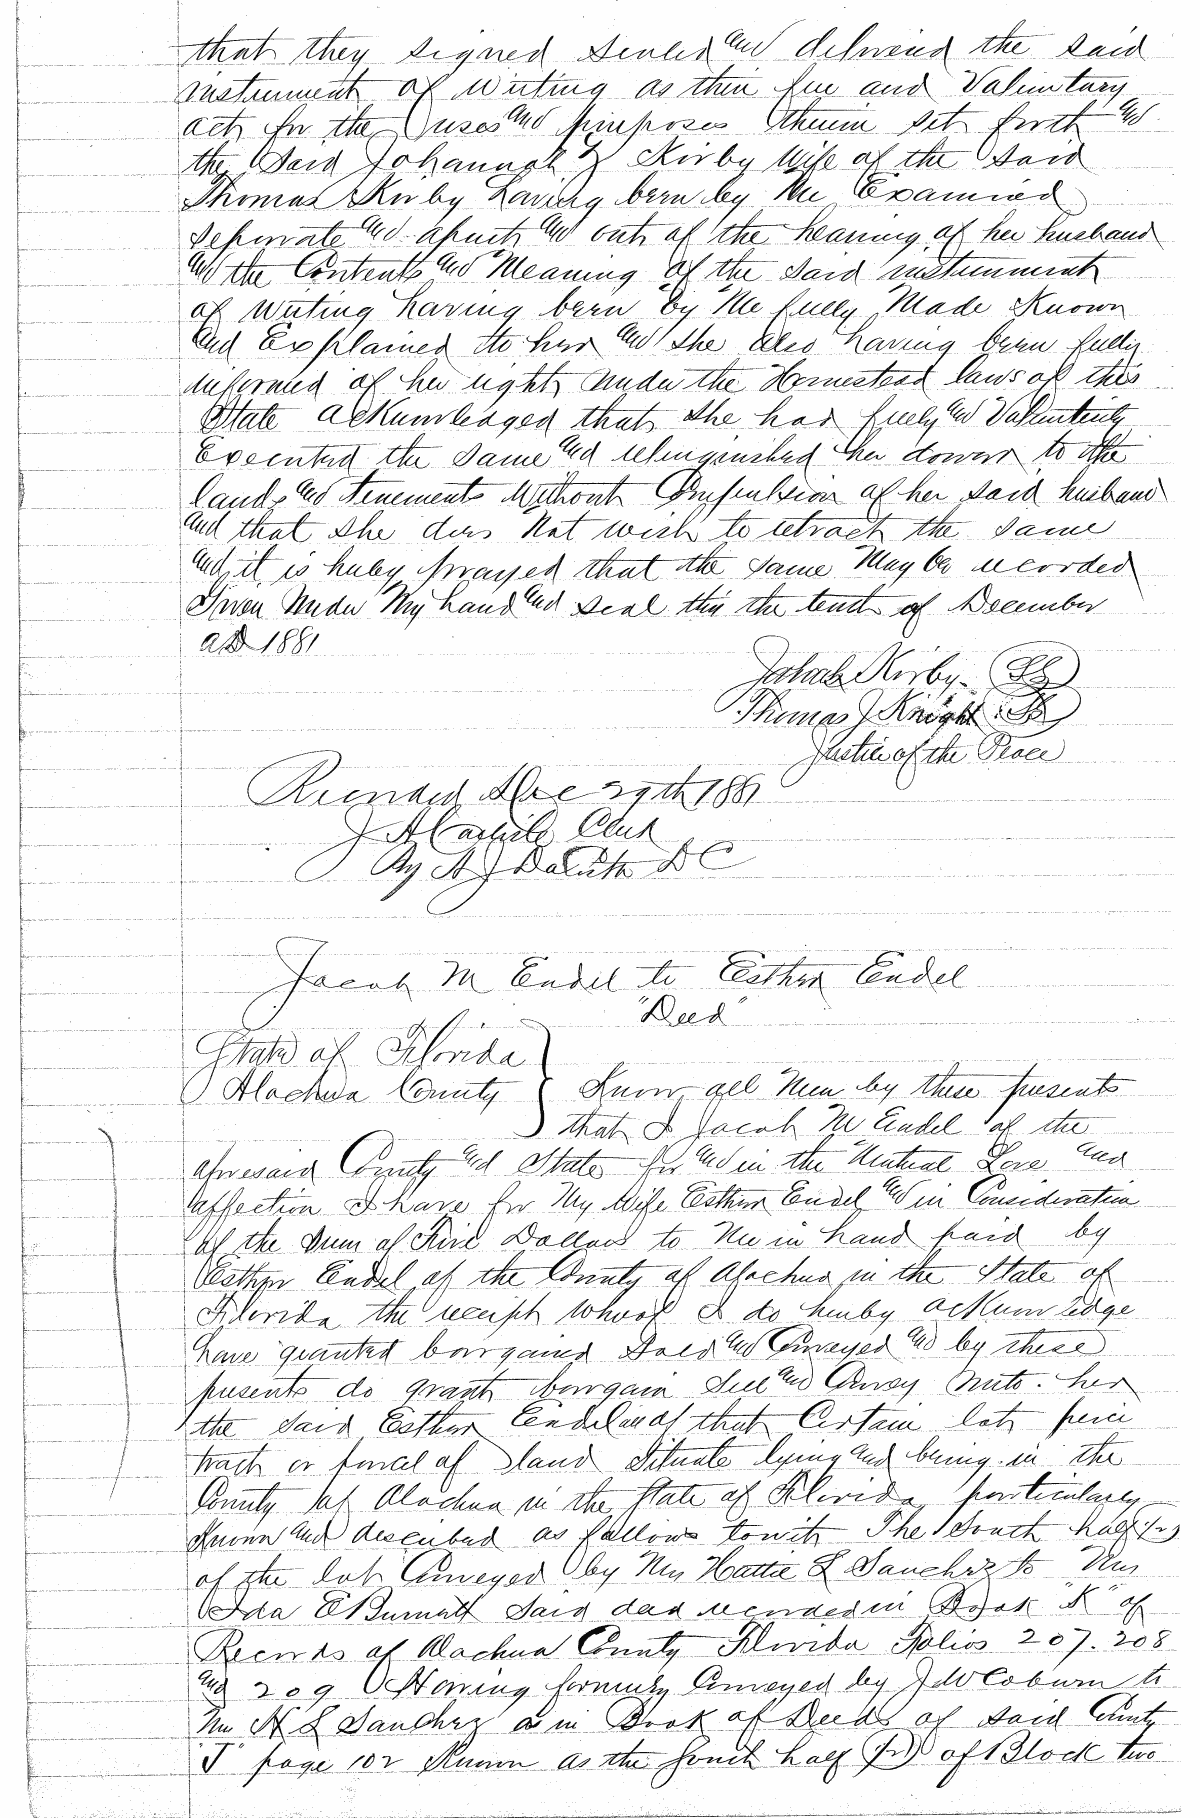 that they signed sealed and delivered the said
instrument of writing as their free and Valuntary
act for the uses and purposes therein set forth and
the said Johannah Kirby wife of the said
Thomas Kirby having been by me Examined
seperate and apart and out of the hearing of her husband
and the Contents and Meaning of the said instrument
of writing having been by Me fully Made Known
and Explained to her and she also having been fully
informed of her right under the Homestead laws of this
State acknowledged that she had freely and Valuntarily
Executed the same and relinquished her dower to the
lands and tenements without Compulsion of her said husband
and that she does Not wish to retract the same
and it is hereby prayed that the same May be recorded
Given Under My hand and seal this the tenth of December
AD 1881
Kirby
Thomas J Knight
Justice of the Peace
Recorded Dec 29th 1881
J A Carlisle Clerk
By A J DC
Jacob M Endel to Esther Endel
"Deed"
State of Florida
Alachua County Know all Men by these presents
that I Jacob M Endel of the
aforesaid County and State for and in the Mutual Love and
affection I have for My Wife Esther Endel and in Consideration
of the sum of Five Dollars to Me in hand paid by
Esther Endel of the County of Alachua in the State of
Florida the receipt whoof I do hereby acknowledge
have granted bargained Sold and Conveyed and by these
presents do grant bargain Sell and Convey unto her
the said Esther Endel all that Certain lot peice
tract or parcel of land Situate lying and being in the
County of Alachua in the State of Florida particularly
Known and described as follows towit The South half (½)
of the lot Conveyed by Mrs Hattie L Sanchez to Mrs
Ida E Burnett Said deed recorded in Book "K" of
Records of Alachua County Florida Folios 207. 208
and 209 Having formerly Conveyed by J W Coburn to
Mrs H L Sanchez as in Book of Deeds of said County
"J" page 102 Known as the South half (½) of Block two